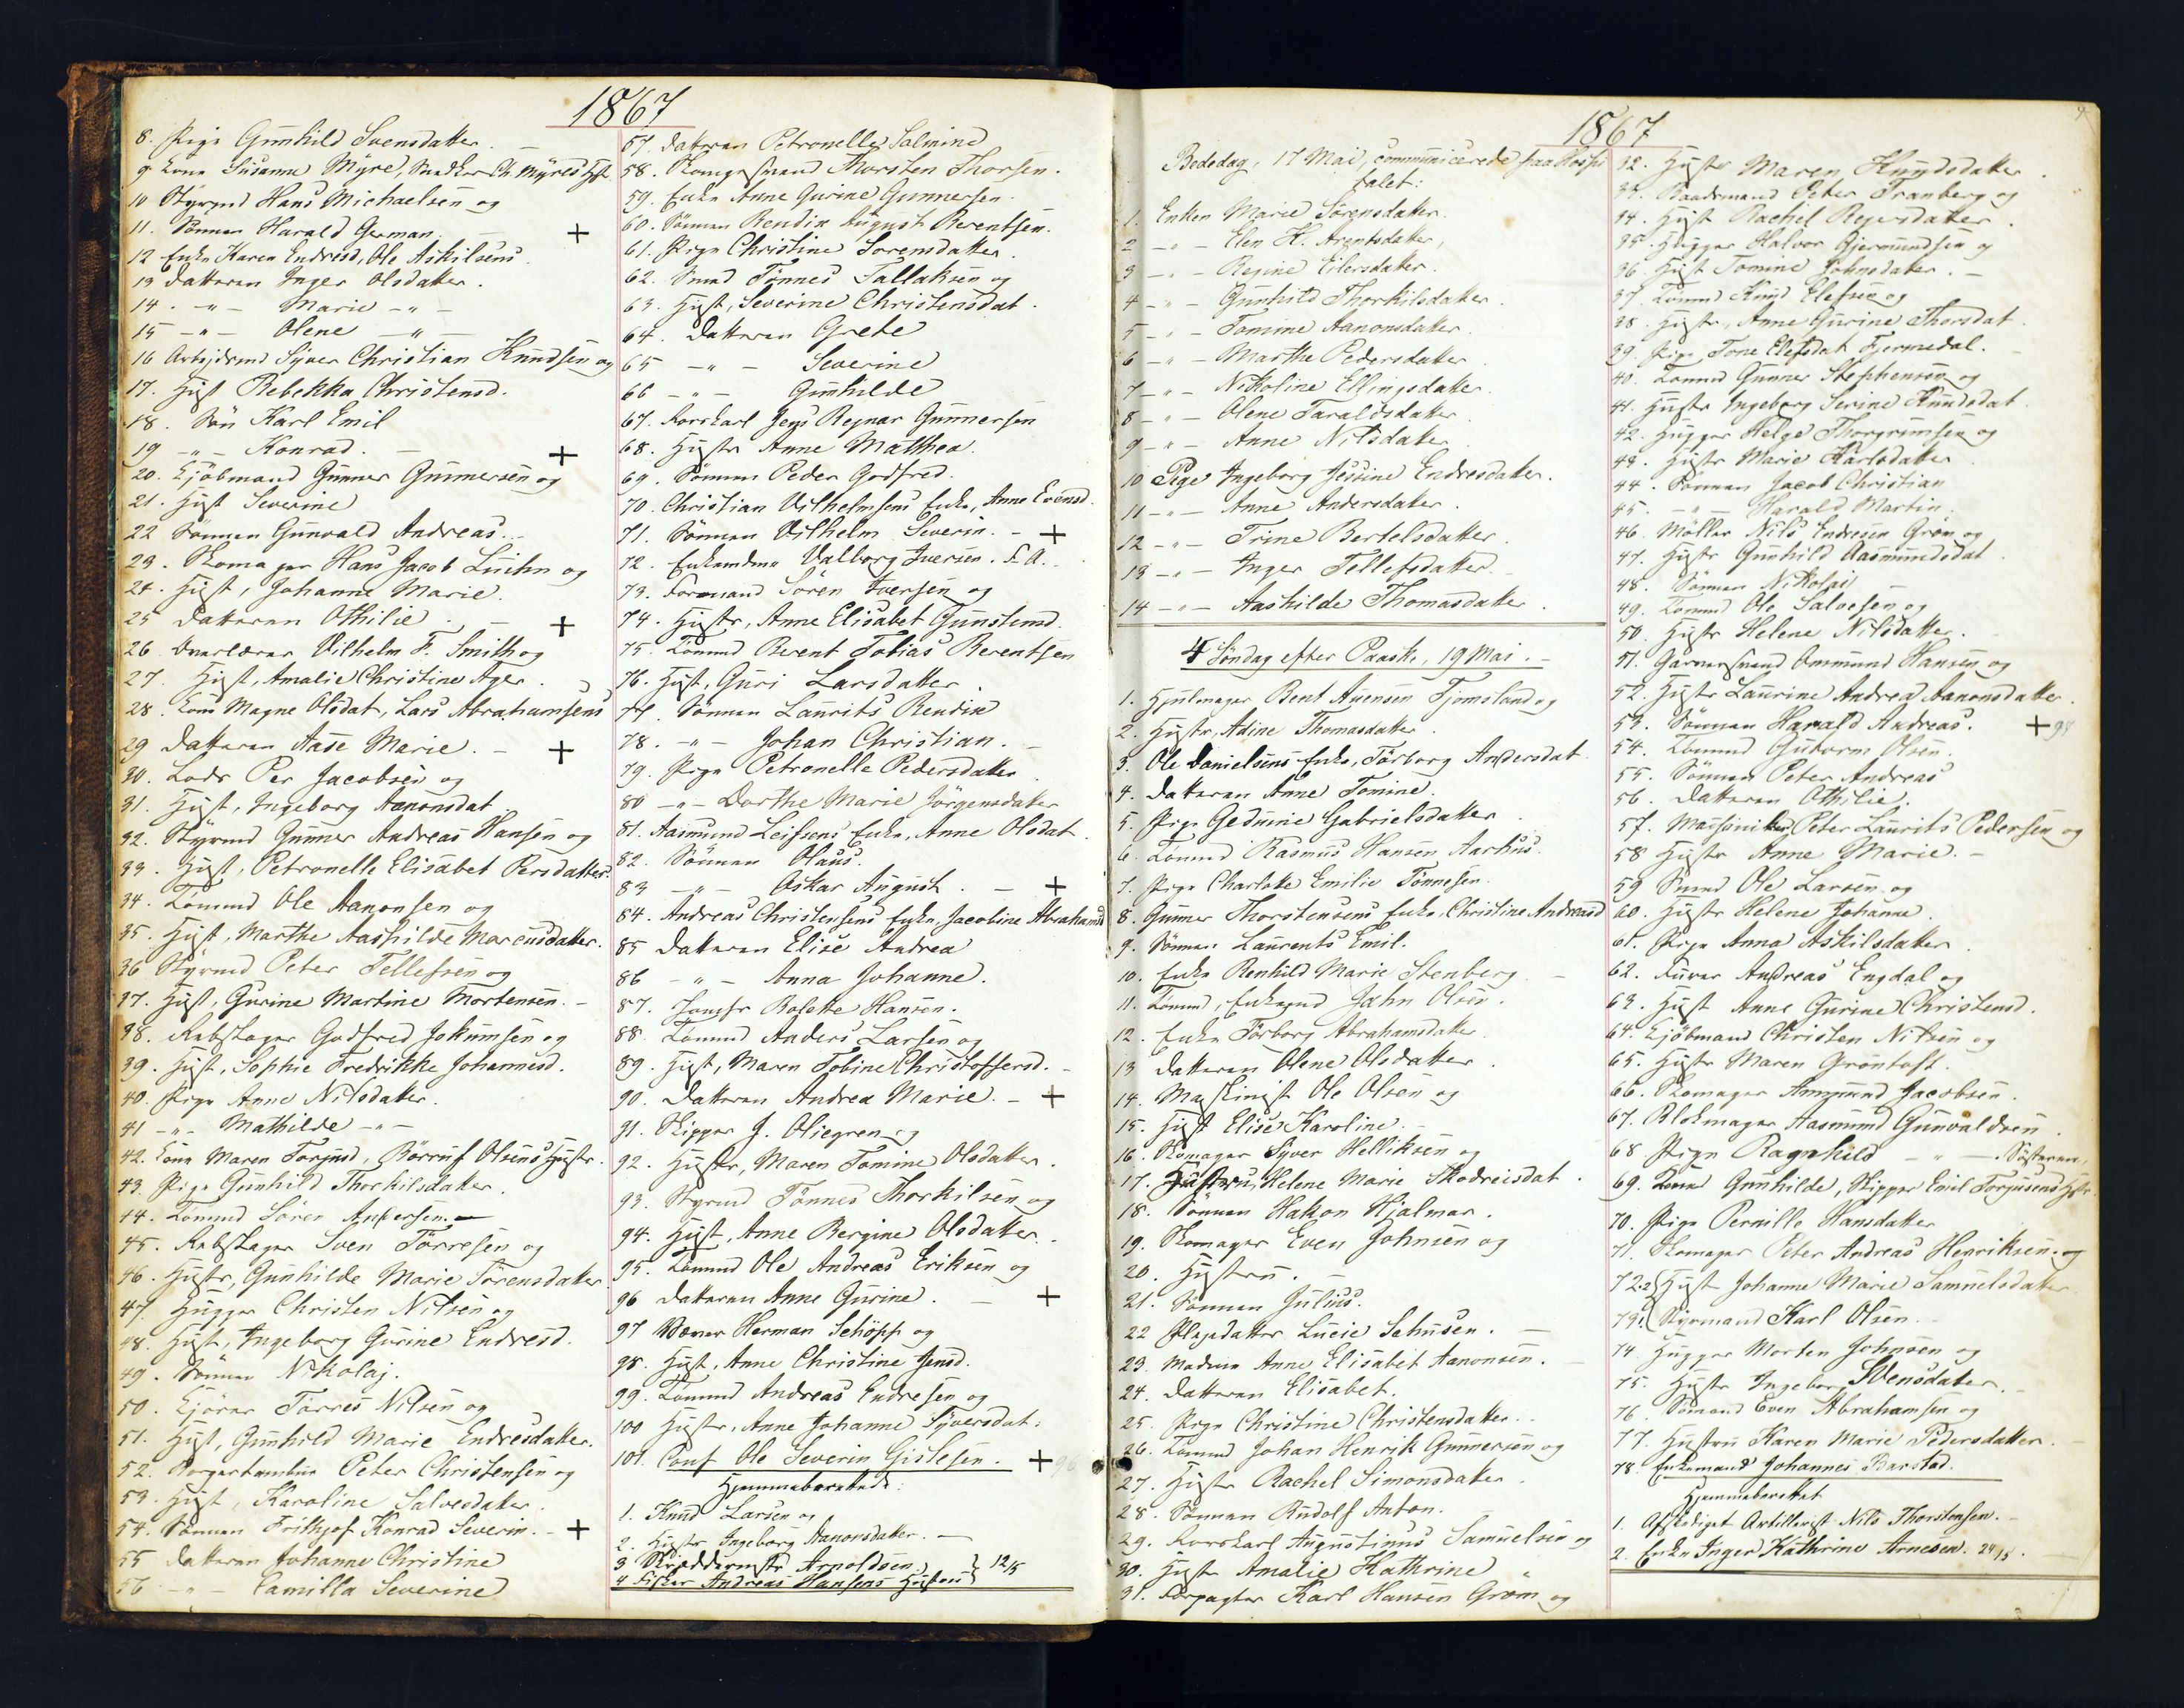 1867
8. Pige Gunhild Svensdatter.
9. Kone Susanne Myre, Snedker Ch. Myres Hst.
10 Styrmd Hans Michaelsen og
11. Sønnen Harald German. +
12 Enke Karen Endresd, Ole Askilsens
13 Datteren Inger Olsdatter.
14. -"- Marie -"-
15 -"- Olene -"-
16 Arbejdsmd Syver Christian Knudsen og
17. Hust Rebekka Christensd.
18. Søn Karl Emil
19 -"- Konrad. +
20. Kjøbmand Gunner Gunnersen og
21. Hust Severine
22 Sønnen Gunvald Andreas. -
23. Skomager Hans Jacob Luihn og
24. Hust, Johanne Marie.
25 Datteren Othilie. - +
26. Overlærer Vilhelm F. Smith og
27. Hust, Amalie Christine Ager.
28. Kone Magne Olsdat, Lars Abrahamsens
29 Datteren Aase Marie. - +
30. Lods Per Jacobsen og
31. Hust, Ingeborg Aanonsdat.
32. Styrmd Gunner Andreas Hansen og
33. Hust, Petronelle Elisabet Persdatter.
34. Tømmd Ole Aanonsen og
35. Hust, Marthe Aashilde Marcusdatter.
36 Styrmd Peter Tellefsen og
37. Hust, Gurine Martine Mortensen. -
38. Rebslager Godfred Jokumsen og
39. Hust, Sophie Fredrikke Johannesd.
40. Pige Anne Nilsdatter.
41 -"- Mathilde -"-
42. Kone Maren Torjusd, Børruf Olsens Hustr.
43. Pige Gunhild Thorkilsdatter.
44. Tømmd Søren Andersen. -
45. Rebslager Sven Tørresen og
46. Hustr, Gunhilde Marie Sørensdatter
47. Hugger Christen Nilsen og
48. Hust, Ingeborg Gurine Endresd.
49. Sønnen Nikolaj.
50. Kjører Tørres Nilsen og
51. Hust, Gunhild Marie Endresdatter.
52. Borgertambur Peter Christensen og
53. Hust, Karoline Salvesdatter.
54. Sønnen Frithjof Konrad Severin. - +
55 Datteren Johanne Christine
56 -"- Camilla Severine
57. Datteren Petronelle Salmine
58. Skomagersvend Thorsten Thorsen.
59. Enke Anne Gurine Gunnersen.
60. Sønnen Bendix August Berentsen.
61. Pige Christine Sørensdatter.
62. Smed Tønnes Sallaksen og
63. Hust, Severine Christensdat.
64. Datteren Grete
65 -"- Severine
66 -"- Gunhilde
67. Korskarl Jens Reynar Gunnersen
68. Hustr Anne Mathea.
69. Sønnen Peder Godfred.
70. Christian Vilhelmsens Enke, Anne Evensd.
71. Sønnen Vilhelm Severin. - +
72. Enkemdme Valborg Iversen. F. A.
73. Formand Søren Iversen og
74. Hustr, Anne Elisabet Gunstensd.
75. Tømmd Berent Tobias Berentsen
76. Hust, Guri Larsdatter.
77. Sønnen Laurits Bendix
78. -"- Johan Christian. -
79. Pige Petronelle Pedersdatter.
80 -"- Dorthe Marie Jørgensdatter
81. Aasmund Leifsens Enke, Anne Olsdat.
82. Sønnen Olaus.
83 -"- Oskar August. - +
84. Andreas Christensens Enke, Jacobine Abrahamsd
85 Datteren Elise Andrea
86 -"- Anna Johanne.
87. Jomfr Bolette Hansen.
88. Tømmd Anders Larsen og
89. Hust, Maren Tobine Christoffersd. -
90. Datteren Andrea Marie. - +
91. Skipper J. Oliegren og
92. Hustr, Maren Tomine Olsdatter.
93. Styrmd Tønnes Thorkilsen og
94. Hust, Anne Bergine Olsdatter.
95. Tømmd Ole Andreas Eriksen og
96 Datteren Anne Gurine. - +
97 Væver Herman Schöpp og
98. Hust, Anne Christine Jensd.
99. Tømmd Andreas Endresen og
100 Hustr, Anne Johanne Syversdat.
101. Conf Ole Severin Gislesen. + 96
Hjemmeberettede:
1. Knud Larsen og
2. Hustr Ingeborg Aanonsdatter. -
3 Skræddermstr Arnoldsen,
4 Fisker Andreas Hansens Hustru } 12/5
1867
Bededag, 17 Mai, communicerede paa Hospi
talet:
1. Enken Marie Sørensdatter.
2 -"- Elen H. Arentsdatter,
3 -"- Regine Eilersdatter.
4 -"- Gunhild Thorkilsdatter.
5 -"- Tomine Aanonsdatter.
6 -"- Marthe Pedersdatter.
7 -"- Nikoline Ellingsdatter.
8 -"- Olene Taraldsdatter.
9 -"- Anne Nilsdatter.
10 Pige Ingeborg Jessine Endresdatter.
11 -"- Anne Andersdatter.
12 -"- Trine Bertelsdatter.
13 -"- Inger Tellefsdatter. -
14 -"- Aashilde Thomasdatter.
4 Søndag efter Paaske, 19 Mai. -
1. Hjulmager Bent Auensen Tjomsland og
2. Hustr, Adine Thomasdatter.
3. Ole Danielsens Enke, Tørborg Andersdat.
4. Datteren Anne Tomine.
5. Pige Gedmine Gabrielsdatter.
6. Tømmd Rasmus Hansen Aarhus.
7. Pige Charlotte Emilie Tønnesen.
8. Gunner Thorstensens Enke, Christine Andreasd
9. Sønnen Laurents Emil.
10. Enke Renhild Marie Stenberg. -
11. Tømmd, Enkemd John Olsen.
12. Enke Tørborg Abrahamsdatter.
13 Datteren Olene Olsdatter.
14. Maskinist Ole Olsen og
15. Hust Elise Karoline. -
16. Skomager Syver Helliksen og
17. Hustru, Helene Marie Skodreisdat.
18. Sønnen Hakon Hjalmar.
19. Skomager Even Johnsen og
20. Hustru. -
21. Sønnen Julius.
22 Plejedatter Lucie Schusen. -
23. Madme Anne Elisabet Aanonsen. -
24. Datteren Elisabet.
25. Pige Christine Christensdatter. -
26. Tømmd Johan Henrik Gunnersen og
27. Hustr Rachel Simonsdatter.
28. Sønnen Rudolf Anton.
29. Korskarl Augustinus Samuelsen og
30. Hustr Amalie Kathrine
31. Forpagter Karl Hansen Grøm og
32. Hustr Maren Knudsdatter.
33. Baadsmand Peter Tranberg og
34. Hust Rachel Reiersdatter.
35. Hugger Halvor Gjermundsen og
36. Hust Tomine Johnsdatter. -
37. Tømmd Knud Elefsen og
38. Hustr, Anne Gurine Thorsdat.
39. Pige Tone Elefsdat Fjermedal. -
40. Tømmd Gunner Stephensen og
41. Hustr Ingeborg Serine Knudsdat.
42. Hugger Helge Thorgrimsen og
43. Hustr Marie Karlsdatter
44. Sønnen Jacob Christian
45. -"- Harald Martin.
46. Møller Nils Endresen Grøm og
47. Hustr Gunhild Aasmundsdat.
48. Sønnen Nikolai -
49. Tømmd Ole Salvesen og
50. Hustr Helene Nilsdatter.
51. Garversvend Ommund Hansen og
52. Hustr Laurine Andrea Aanonsdatter.
53. Sønnen Harald Andreas. +
54. Tømmd Gutorm Olsen.
55. Sønnen Peter Andreas
56. Datteren Othilie.
57. Peter Laurits Pedersen og
58 Hustr Anne Marie. -
59 Smed Ole Larsen og
60. Hustr Helene Johanne.
61. Pige Anna Askilsdatter.
62. Furer Andreas Engdal og
63. Hust Anne Gurine Christensd.
64. Kjøbmand Christen Nilsen og
65. Hustr Maren Grøntoft.
66. Skomager Ammund Jacobsen.
67. Blokmager Aasmund Gunvaldsen.
68. Pige Ragnhild -"- Søsteren.
69. Kone Gunhilde, Skipper Emil Torjusens Hstr.
70. Pige Pernille Hansdatter
71. Skomager Peter Andreas Henriksen og
72.2 Hust Johanne Marie Samuelsdatter.
73.1 Styrmand Karl Olsen. -
74. Hugger Morten Johnsen og
75. Hustr Ingeborg Svensdatter. -
76. Sømand Even Abrahamsen og
77. Hustru Karen Marie Pedersdatter. -
78. Enkemand Johannes Barstad.
Hjemmeberettet
1. Afskediget Artillerist Nils Thorstensen. -
2. Enke Inger Kathrine Arnesen. 24/5. -